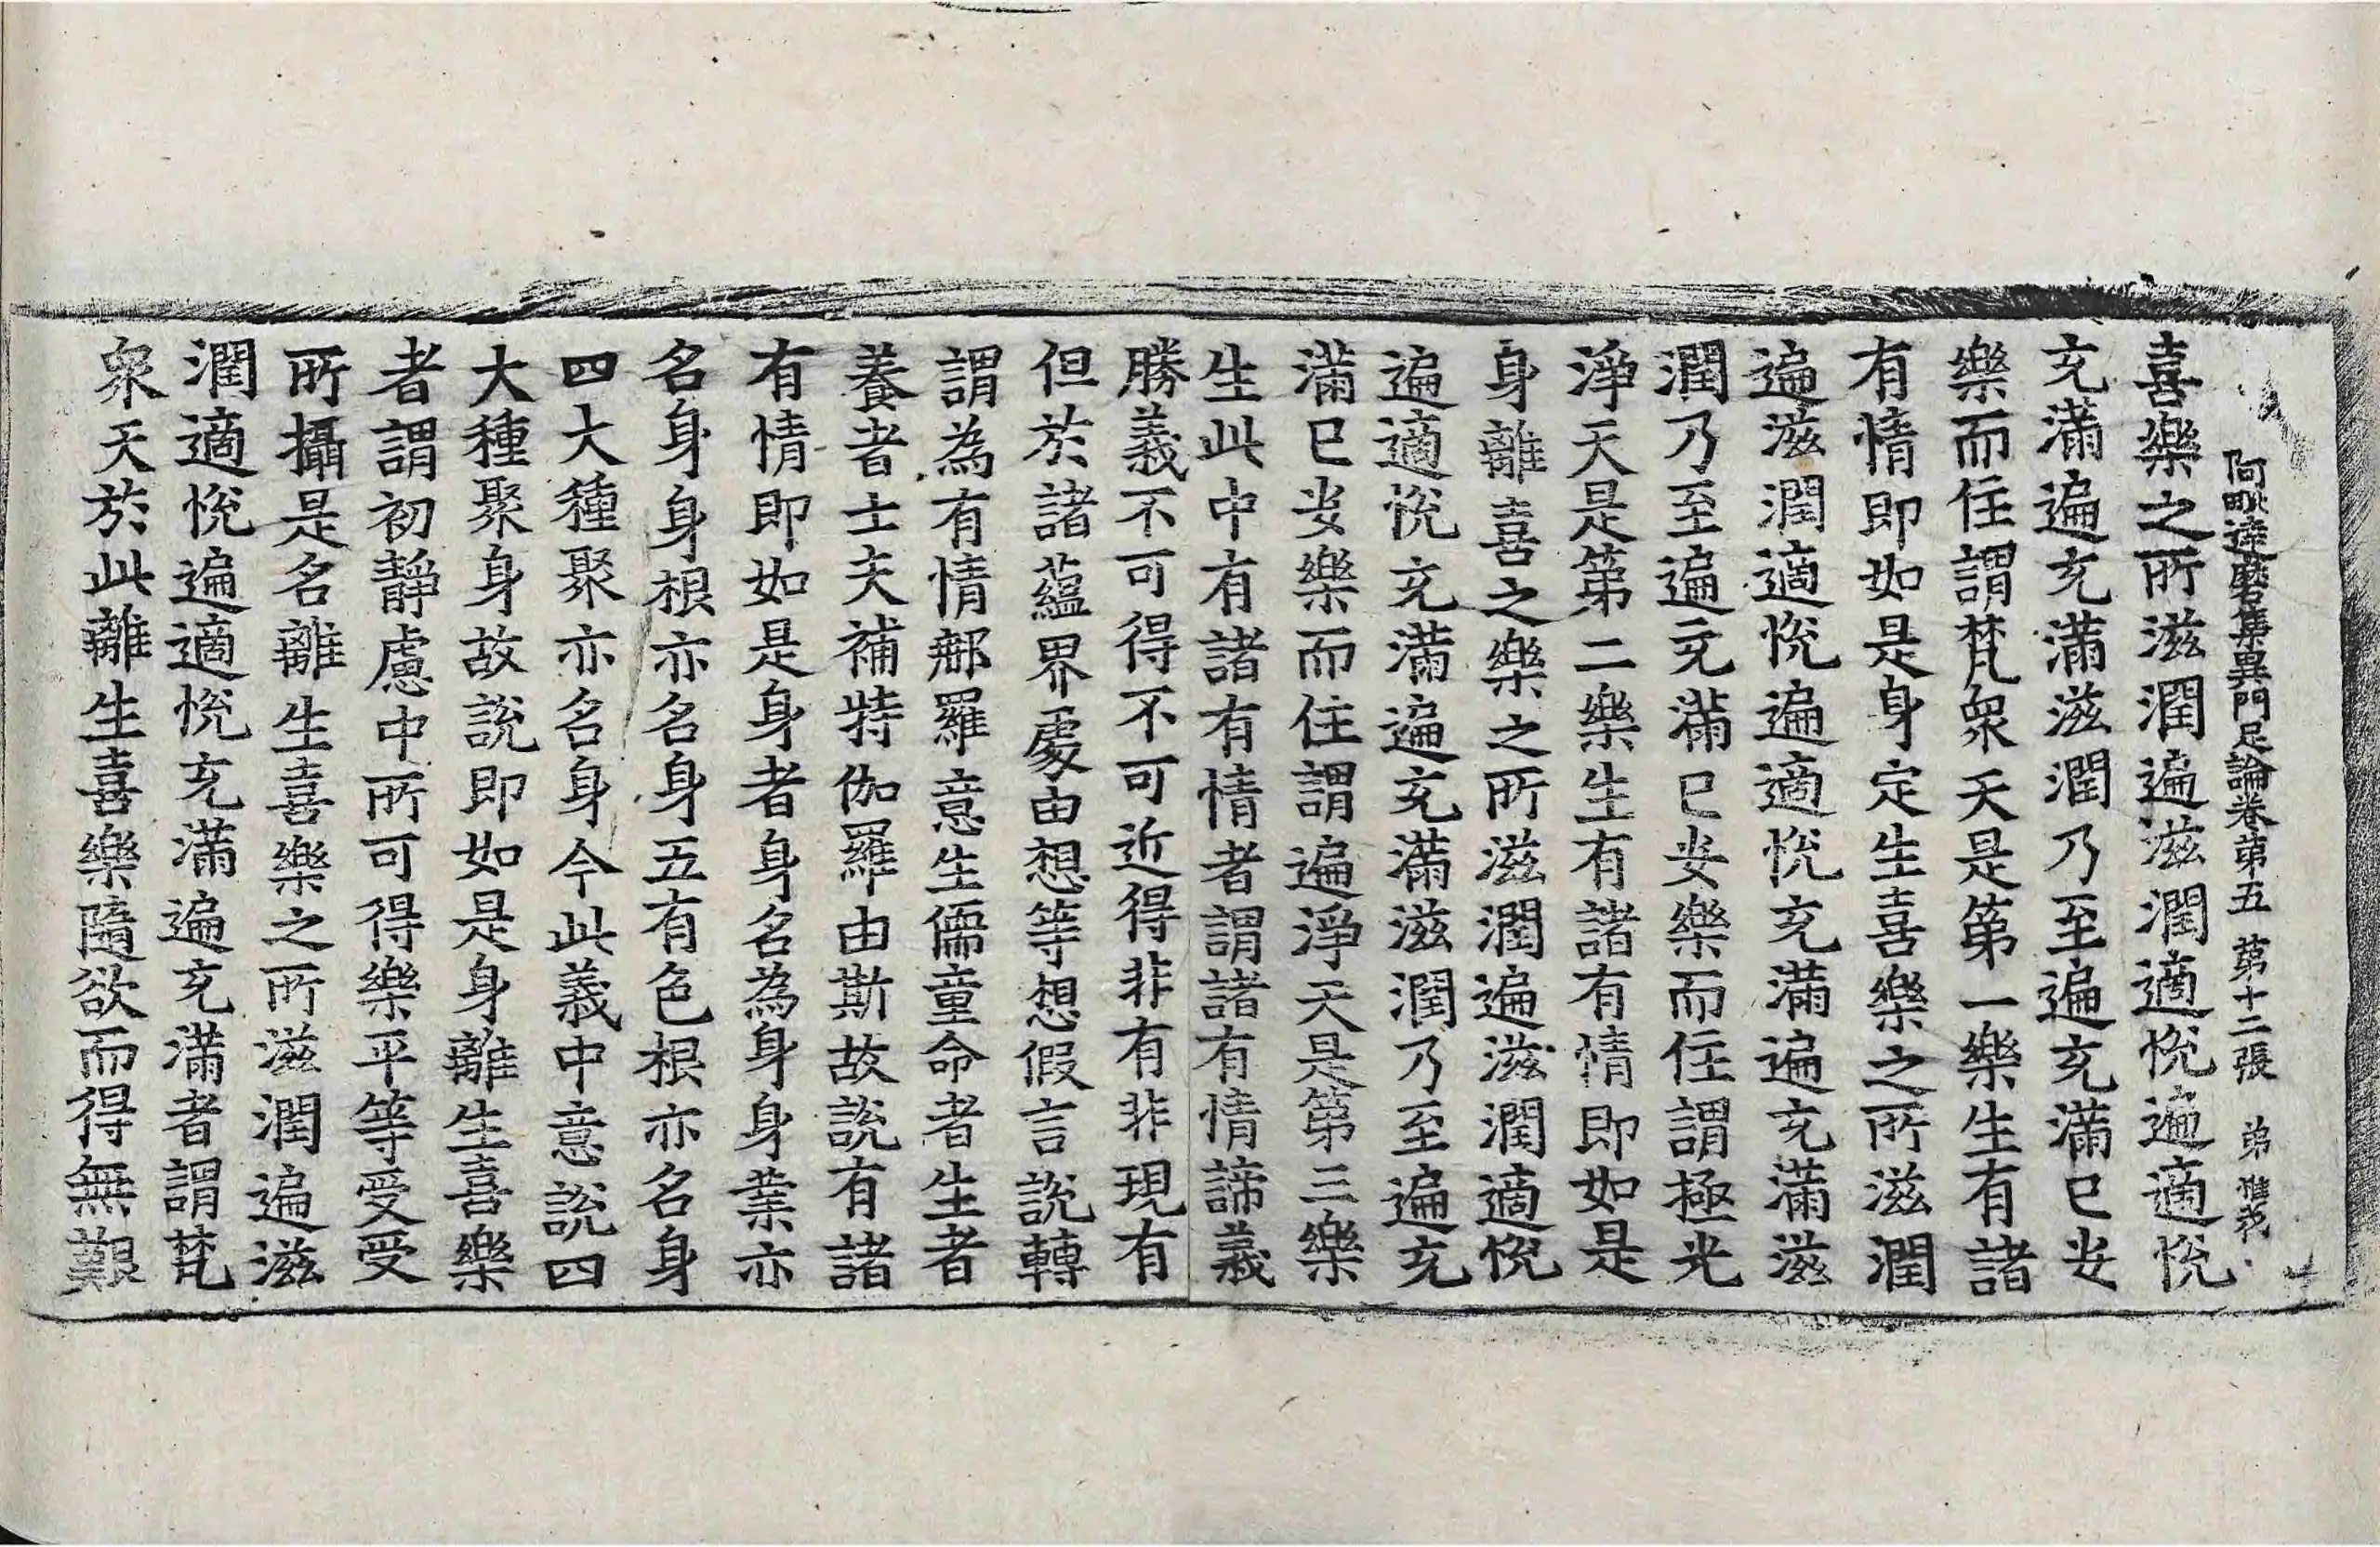 阿毗達磨集異門足論卷第五 第十二張 弟
喜樂之所滋潤遍滋潤適悅遍適悅
充滿遍充滿滋潤乃至遍充滿已安
樂而住謂梵眾天是第一樂生有諸
有情即如是身定生喜樂之所滋潤
遍滋潤適悅遍適悅充滿遍充滿滋
潤乃至遍充滿已安樂而住謂極光
淨天是第二樂生有諸有情即如是
身離喜之樂之所滋潤遍滋潤適悅
遍適悅充滿遍充滿滋潤乃至遍充
滿已安樂而住謂遍淨天是第三樂
生此中有諸有情者謂諸有情諦義
勝義不可得不可近得非有非現有
但於諸蘊界處由想等想假言說轉
謂為有情那羅意生儒童命者生者
養者士夫補特伽羅由斯故說有諸
有情即如是身者身名為身身業亦
名身身根亦名身五有色根亦名身
四大種聚亦名身今此義中意說四
大種聚身故說即如是身離生喜樂
者謂初靜慮中所可得樂平等受受
所攝是名離生喜樂之所滋潤遍滋
潤適悅遍適悅充滿遍充滿者謂梵
眾天於此離生喜樂隨欲而得無艱